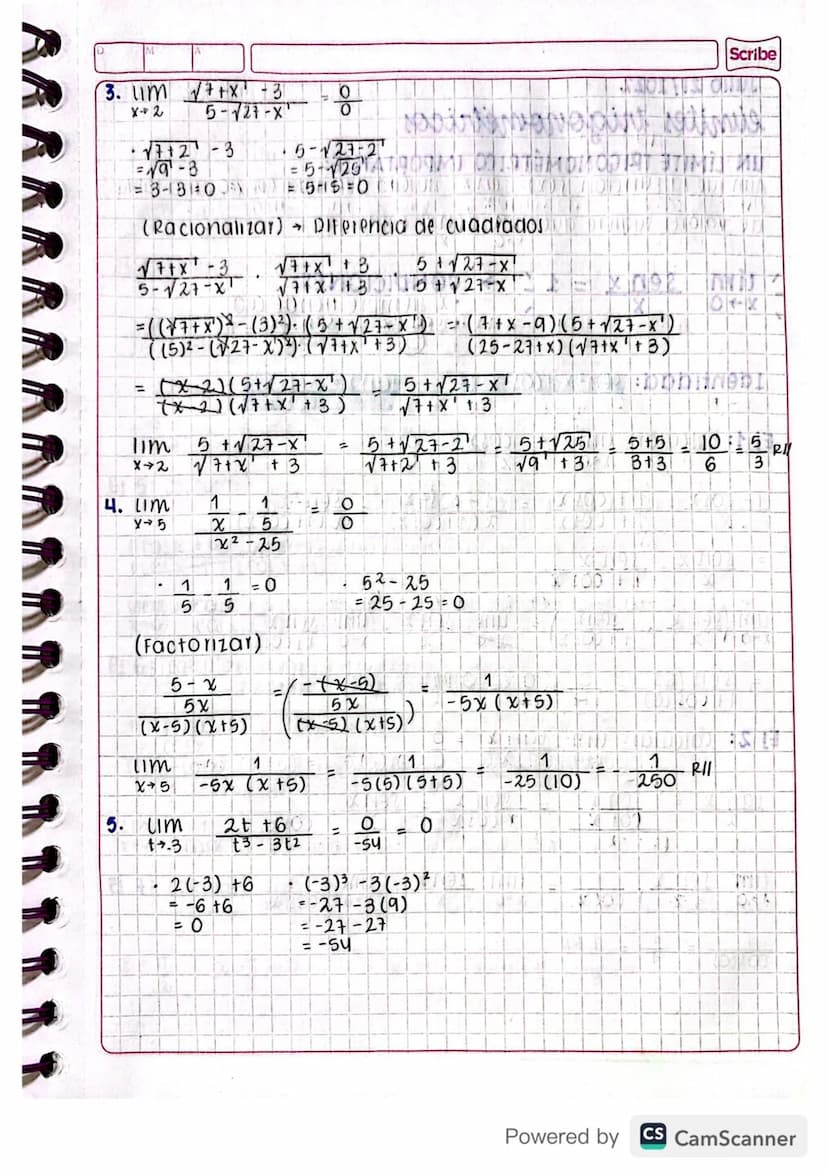 D M A
Scribe
3. lim x→2 (√(7+x) - 3)/(5 - √(27-x)) = 0/0
· √(7+2) - 3 · 5 - √(27-2)
= √9 - 3 = 5 - √25
= 3 - 3 = 0 = 5 - 5 = 0
(Racionalizar) → Diferencia de cuadrados
(√(7+x) - 3)/(5 - √(27-x)) · (√(7+x) + 3)/(√(7+x) + 3) · (5 + √(27-x))/(5 + √(27-x))
= ((√(7+x))² - (3)²) · (5 + √(27-x)) / ((5)² - (√(27-x))²) · (√(7+x) + 3) = (7+x-9)(5+√(27-x)) / (25-27+x)(√(7+x) + 3)
= (x-2)(5+√(27-x)) / (x-2)(√(7+x) + 3) = (5+√(27-x))/(√(7+x) + 3)
lim x→2 (5+√(27-x))/(√(7+x) + 3) = (5+√(27-2))/(√(7+2) + 3) = (5+√25)/(√9 + 3) = (5+5)/(3+3) = 10/6 = 5/3 R//
4. lim x→5 (1/x - 1/5)/(x² - 25) = 0/0
· 1/5 - 1/5 = 0 · 5² - 25
= 25 - 25 = 0
(Factorizar)
((5-x)/5x)/((x-5)(x+5)) = ((-(x-5)/5x)/((x-5)(x+5))) = 1/(-5x(x+5))
lim x→5 1/(-5x(x+5)) = 1/(-5(5)(5+5)) = 1/(-25(10)) = - 1/250 R//
5. lim t→-3 (2t+6)/(t³ - 3t²) = 0/-54 = 0
· 2(-3) + 6 · (-3)³ - 3(-3)²
= -6 + 6 = -27 - 3(9)
= 0 = -27 - 27
= -54
Powered by CS CamScanner